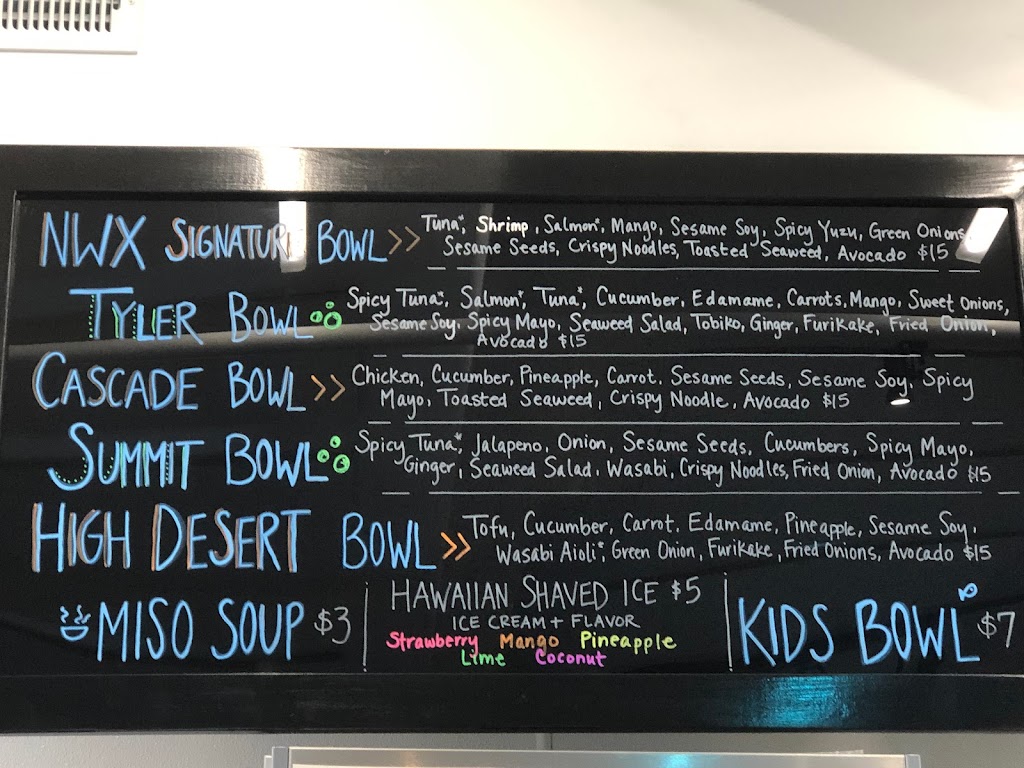 NWX SIGNATURE BOWL >> Tuna*, Shrimp, Salmon*, Mango, Sesame Soy, Spicy Yuzu, Green Onions,
Sesame Seeds, Crispy Noodles, Toasted Seaweed, Avocado $15
TYLER BOWL Spicy Tuna*, Salmon*, Tuna*, Cucumber, Edamame, Carrots, Mango, Sweet Onions,
Sesame Soy, Spicy Mayo, Seaweed Salad, Tobiko, Ginger, Furikake, Fried Onion,
Avocado $15
CASCADE BOWL >> Chicken, Cucumber, Pineapple, Carrot, Sesame Seeds, Sesame Soy, Spicy
Mayo, Toasted Seaweed, Crispy Noodle, Avocado $15
SUMMIT BOWL Spicy Tuna*, Jalapeno, Onion, Sesame Seeds, Cucumbers, Spicy Mayo,
Ginger, Seaweed Salad, Wasabi, Crispy Noodles, Fried Onion, Avocado $15
HIGH DESERT BOWL >> Tofu, Cucumber, Carrot, Edamame, Pineapple, Sesame Soy,
Wasabi Aioli*, Green Onion, Furikake, Fried Onions, Avocado $15
MISO SOUP $3
HAWAIIAN SHAVED ICE $5
ICE CREAM + FLAVOR
Strawberry Mango Pineapple
Lime Coconut
KIDS BOWL $7